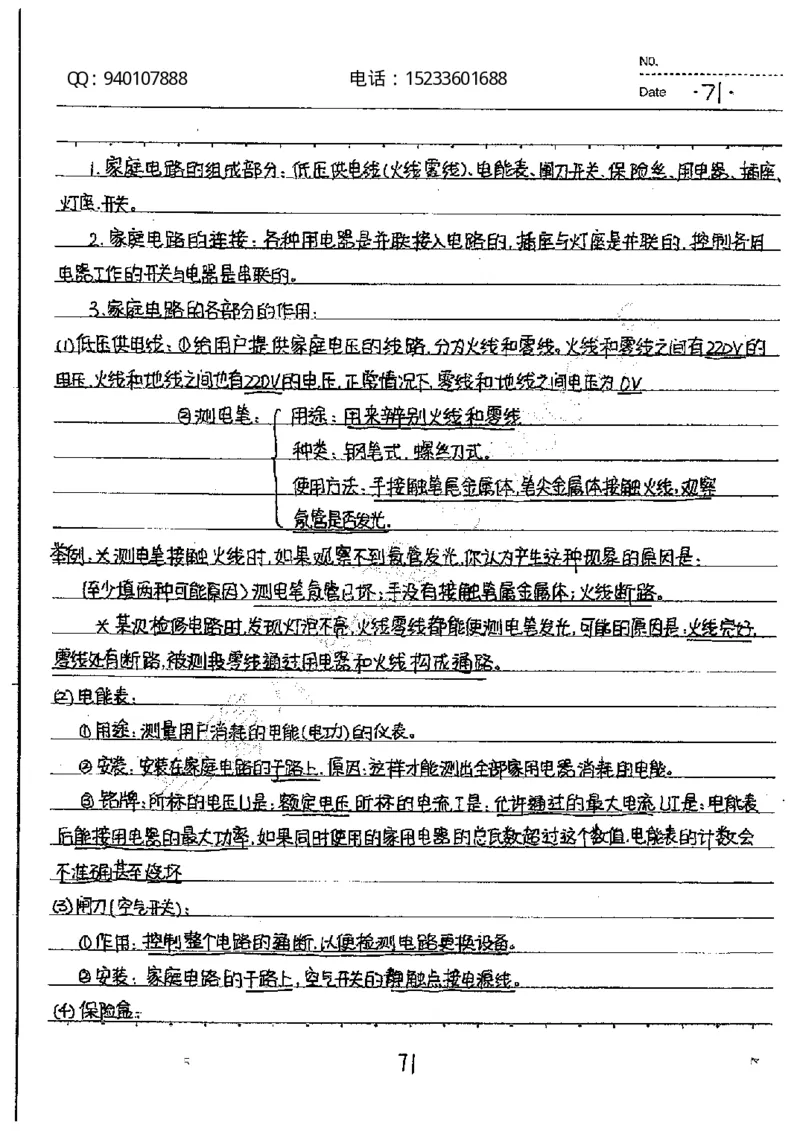 No.
QQ：940107888 电话：15233601688
Date ·71·
1.家庭电路的组成部分：低压供电线(火线零线)、电能表、闸刀开关、保险丝、用电器、插座、
灯座、开关。
2.家庭电路的连接：各种用电器是并联接入电路的，插座与灯座是并联的，控制各用
电器工作的开关与电器是串联的。
3.家庭电路的各部分的作用：
(1)低压供电线：①给用户提供家庭电压的线路，分为火线和零线。火线和零线之间有220V的
电压，火线和地线之间也有220V的电压，正常情况下，零线和地线之间电压为0V
②测电笔：
用途：用来辨别火线和零线
种类：钢笔式，螺丝刀式。
使用方法：手接触笔尾金属体，笔尖金属体接触火线，观察
氖管是否发光.
举例：※测电笔接触火线时，如果观察不到氖管发光，你认为产生这种现象的原因是：
(至少填两种可能原因)测电笔氖管已坏；手没有接触笔尾金属体；火线断路。
※某次检修电路时，发现灯泡不亮，火线零线都能使测电笔发光，可能的原因是：火线完好，
零线处有断路，被测段零线通过用电器和火线构成通路。
(2)电能表：
①用途：测量用户消耗的电能(电功)的仪表。
②安装：安装在家庭电路的干路上，原因：这样才能测出全部家用电器消耗的电能。
③铭牌：所标的电压U是：额定电压，所标的电流I是：允许通过的最大电流，UI是：电能表
后能接用电器的最大功率，如果同时使用的家用电器的总瓦数超过这个数值，电能表的计数会
不准确甚至烧坏
(3)闸刀(空气开关)：
①作用：控制整个电路的通断，以便检测电路更换设备。
②安装：家庭电路的干路上，空气开关的静触点接电源线。
(4)保险盒：
71